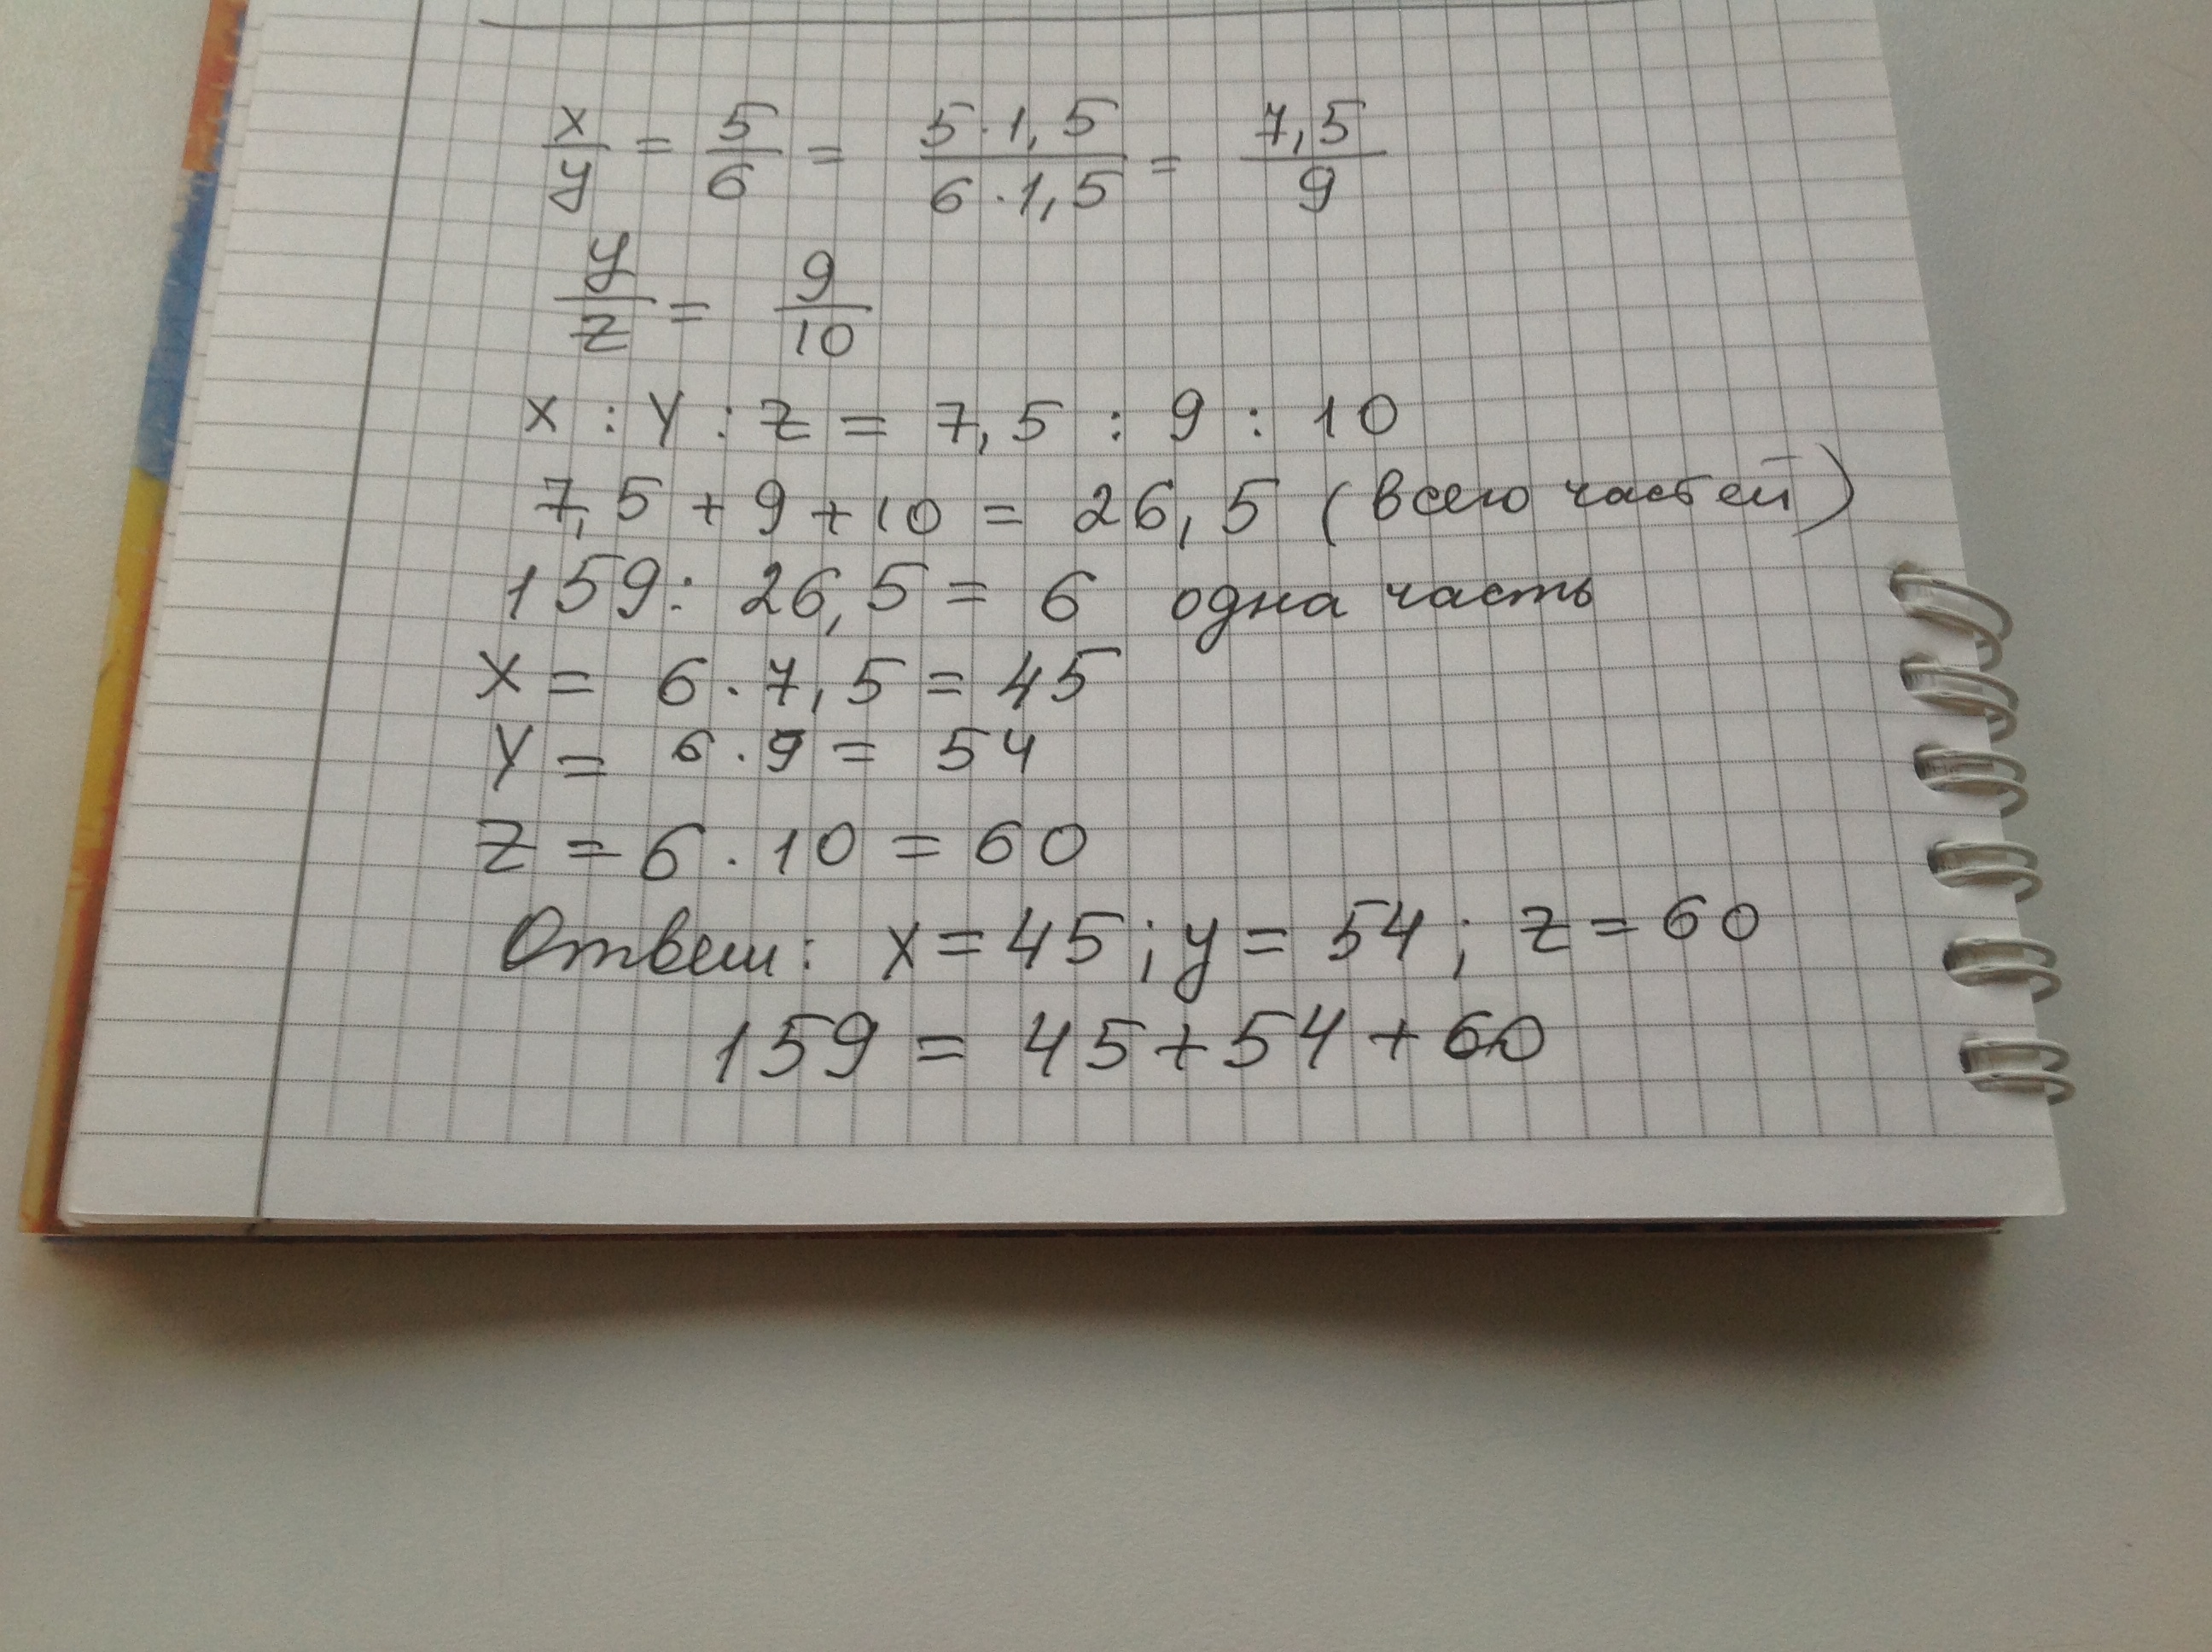 x/y = 5/6 = 5·1,5/6·1,5 = 7,5/9
y/z = 9/10
x : y : z = 7,5 : 9 : 10
7,5 + 9 + 10 = 26,5 (всего частей)
159 : 26,5 = 6 одна часть
x = 6 · 7,5 = 45
y = 6 · 9 = 54
z = 6 · 10 = 60
Ответ: x = 45; y = 54; z = 60
159 = 45 + 54 + 60